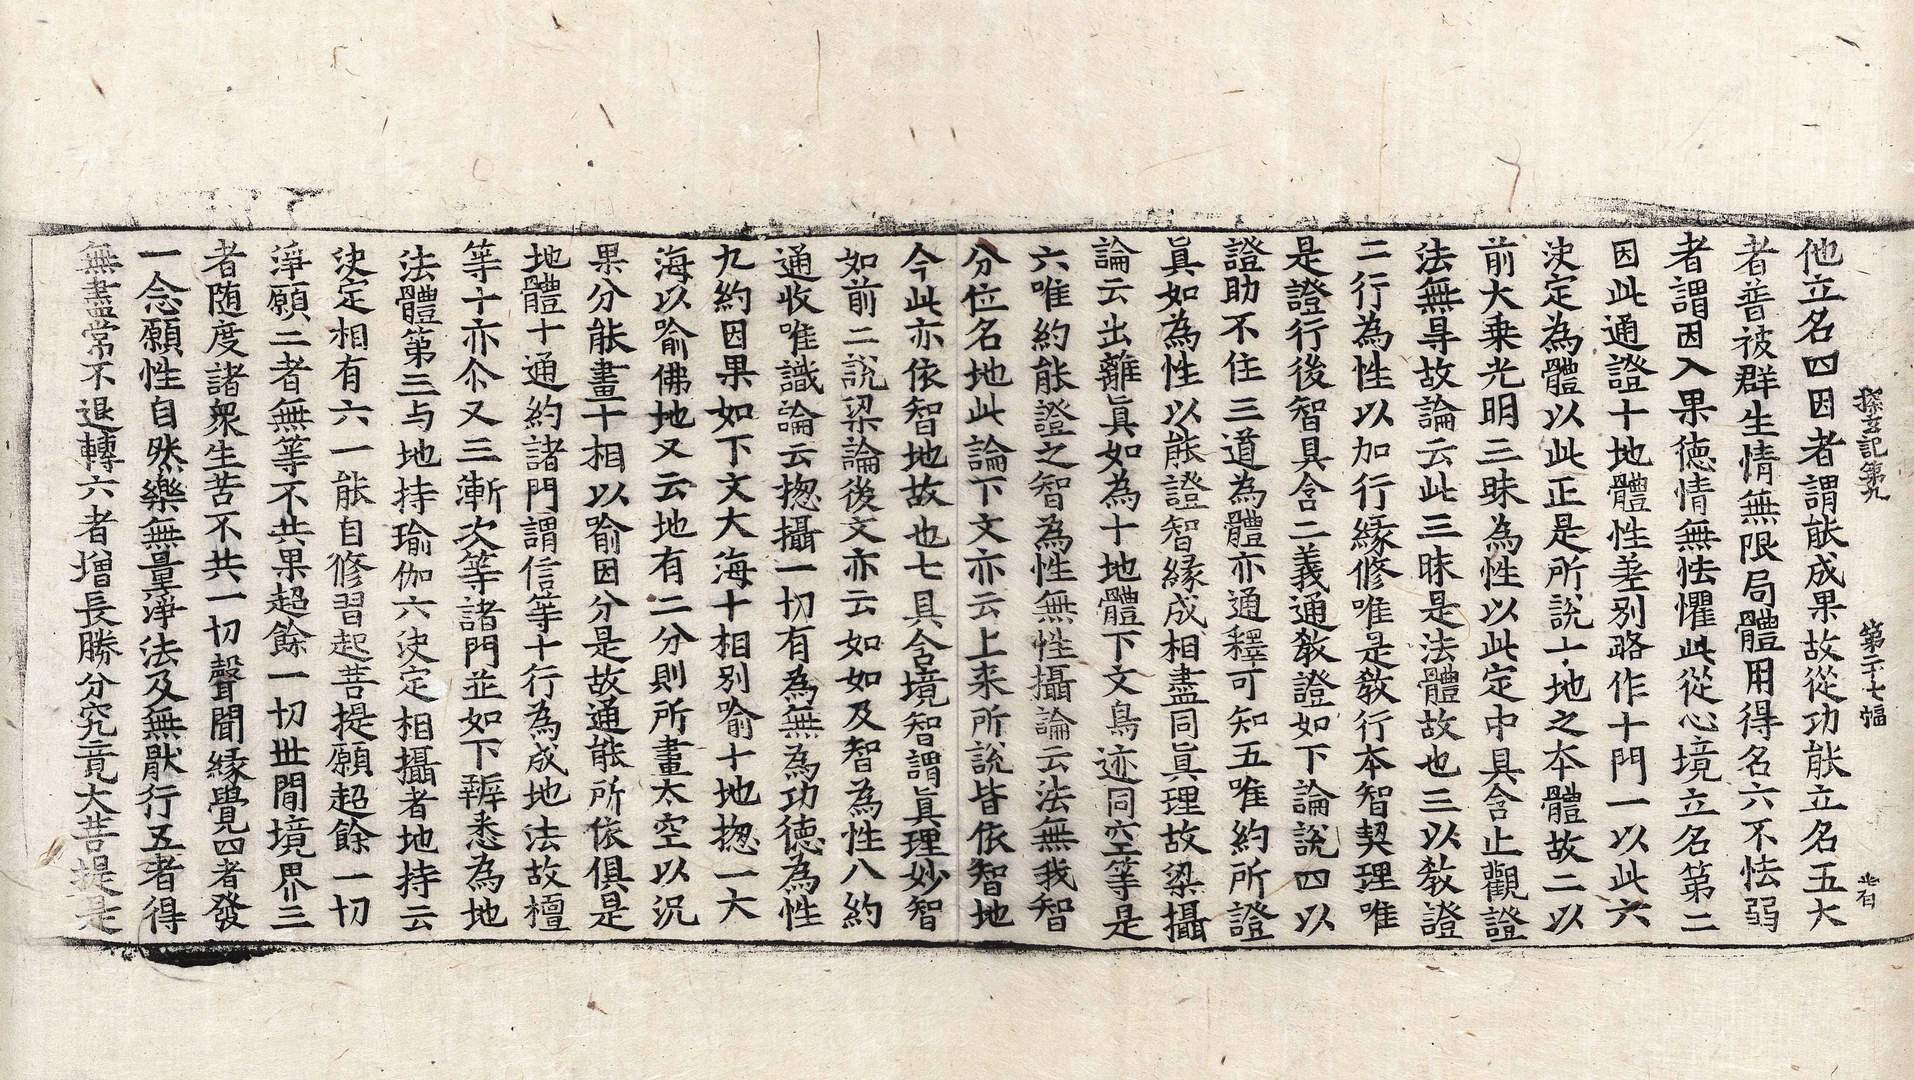 探玄記第九　第二十七幅　昔
他立名四因者謂能成果故從功能立名五大
者普被群生情無限局體用得名六不怯弱
者謂因入果徳情無怯懼此從心境立名第二
因此通證十地體性差别略作十門一以此六
决定為體以此正是所説十地之本體故二以
前大乗光明三昧為性以此定中具含止觀證
法無㝵故論云此三昧是法體故也三以教證
二行為性以加行縁修唯是教行本智契理唯
是證行後智具含二義通教證如下論説四以
證助不住三道為體亦通釋可知五唯約所證
眞如為性以能證智縁成相盡同眞理故梁攝
論云出離眞如為十地體下文鳥迹同空等是
六唯約能證之智為性無性攝論云法無我智
分位名地此論下文亦云上来所説皆依智地
今此亦依智地故也七具含境智謂眞理妙智
如前二説梁論後文亦云如如及智為性八約
通收唯識論云揔攝一切有為無為功徳為性
九約因果如下文大海十相别喻十地揔一大
海以喻佛地又云地有二分則所畫太空以況
果分能畫十相以喻因分是故通能所依俱是
地體十通約諸門謂信等十行為成地法故檀
等十亦尒又三漸次等諸門並如下辨悉為地
法體第三与地持瑜伽六决定相攝者地持云
决定相有六一能自修習起菩提願超餘一切
淨願二者無等不共果超餘一切世間境界三
者随度諸衆生苦不共一切聲聞縁覺四者發
一念願性自然樂無量淨法及無猒行五者得
無盡常不退轉六者增長勝分究竟大菩提是